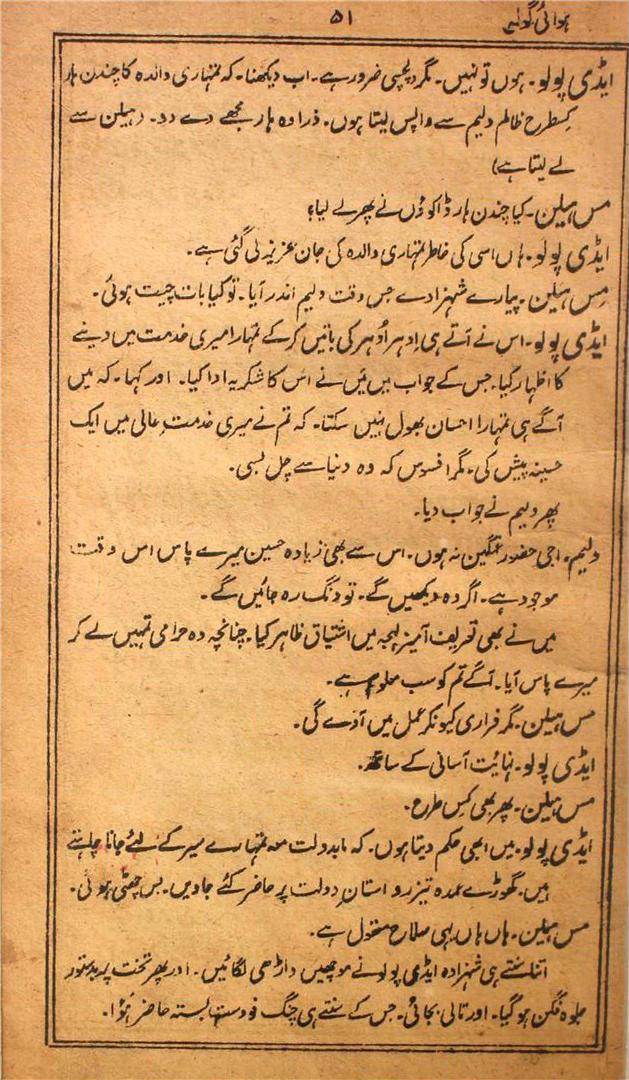 ہوائی گولہ ۵۱
ایڈی پولو۔ ہوں تو نہیں۔ مگر دلچسپی ضرور ہے۔ اب دیکھنا۔ کہ تمہاری والدہ کا چندن ہار
کسطرح ظالم ولیم سے واپس لیتا ہوں۔ ذرا وہ ہار مجھے دے دو۔ (ہیلن سے
لے لیتا ہے)
مس ہیلن۔ کیا چندن ہار ڈاکوؤں نے پھر لے لیا؟
ایڈی پولو۔ ہاں اسی کی خاطر تمہاری والدہ کی جان عزیز لی گئی ہے۔
مس ہیلن۔ پیارے شہزادے جس وقت ولیم اندر آیا۔ تو کیا بات چیت ہوئی۔
ایڈی پولو۔ اس نے آتے ہی ادہر اُدہر کی باتیں کرکے تمہارا میری خدمت میں دینے
کا اظہار کیا۔ جس کے جواب میں مَیں نے اس کا شکریہ ادا کیا۔ اور کہا۔ کہ میں
آگے ہی تمہارا احسان بھول نہیں سکتا۔ کہ تم نے میری خدمت عالی میں ایک
حسینہ پیش کی۔ مگر افسوس کہ وہ دنیا سے چل بسی۔
پھر ولیم نے جواب دیا۔
ولیم۔ اجی حضور غمگین نہ ہوں۔ اس سے بھی زیادہ حسین میرے پاس اس وقت
موجود ہے۔ اگر وہ دیکھیں گے۔ تو دنگ رہ جائیں گے۔
میں نے بھی تعریف آمیز لہجہ میں اشتیاق ظاہر کیا۔ چنانچہ وہ حرامی تمہیں لے کر
میرے پاس آیا۔ آگے تم کو سب معلوم ہے۔
مس ہیلن۔ مگر فراری کیونکر عمل میں آوے گی۔
ایڈی پولو۔ نہایت آسانی کے ساتھ۔
مس ہیلن۔ پھر بھی کس طرح۔
ایڈی پولو۔ میں ابھی حکم دیتا ہوں۔ کہ مابدولت معہ تمہارے سیر کے لئے جانا چاہتے
ہیں۔ گھوڑے عمدہ تیز رو استان دولت پر حاضر کئے جاویں۔ بس چھٹی ہوئی۔
مس ہیلن۔ ہاں ہاں یہی سلاح معقول ہے۔
اتنا سنتے ہی شہزادہ ایڈی پولو نے موچھیں داڑھی لگائیں۔ اور پھر تخت پر بدستور
جلوہ فگن ہو گیا۔ اور تالی بجائی۔ جس کے سنتے ہی چنگ فو دست بستہ حاضر ہؤا۔